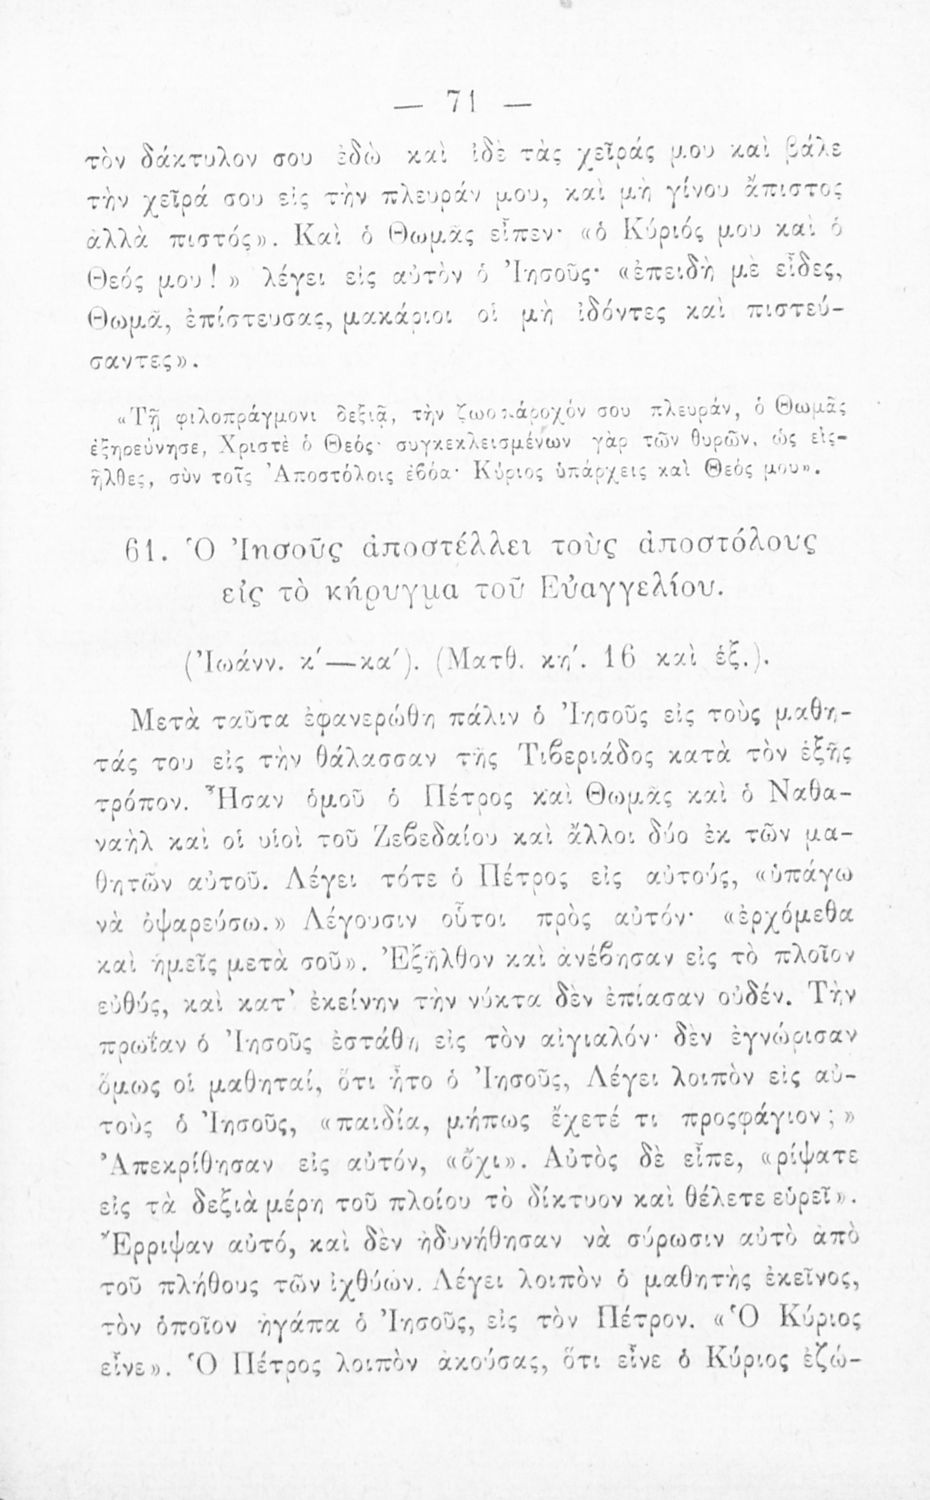 — 71 —
τὸν δάκτυλον σου ἐδῶ καὶ ἰδὲ τὰς χεῖράς μου καὶ βάλε
τὴν χεῖρά σου εἰς τὴν πλευράν μου, καὶ μὴ γίνου ἄπιστος
ἀλλὰ πιστός». Καὶ ὁ Θωμᾶς εἶπεν· «ὁ Κύριός μου καὶ ὁ
Θεός μου! » λέγει εἰς αὐτὸν ὁ Ἰησοῦς· «ἐπειδὴ μὲ εἶδες,
Θωμᾶ, ἐπίστευσας, μακάριοι οἱ μὴ ἰδόντες καὶ πιστεύ-
σαντες».
«Τῇ φιλοπράγμονι δεξιᾷ, τὴν ζωοπάροχόν σου πλευράν, ὁ Θωμᾶς
ἐξηρεύνησε, Χριστὲ ὁ Θεός· συγκεκλεισμένων γὰρ τῶν θυρῶν, ὡς εἰς-
ῆλθες, σὺν τοῖς Ἀποστόλοις ἐβόα· Κύριος ὑπάρχεις καὶ Θεός μου».
61. Ὁ Ἰησοῦς ἀποστέλλει τοὺς ἀποστόλους
εἰς τὸ κήρυγμα τοῦ Εὐαγγελίου.
(Ἰωάνν. κ′—κα′). (Ματθ. κη′. 16 καὶ ἑξ.).
Μετὰ ταῦτα ἐφανερώθη πάλιν ὁ Ἰησοῦς εἰς τοὺς μαθη-
τάς του εἰς τὴν θάλασσαν τῆς Τιβεριάδος κατὰ τὸν ἑξῆς
τρόπον. Ἦσαν ὁμοῦ ὁ Πέτρος καὶ Θωμᾶς καὶ ὁ Ναθα-
ναὴλ καὶ οἱ υἱοὶ τοῦ Ζεβεδαίου καὶ ἄλλοι δύο ἐκ τῶν μα-
θητῶν αὐτοῦ. Λέγει τότε ὁ Πέτρος εἰς αὐτούς, «ὑπάγω
νὰ ὀψαρεύσω.» Λέγουσιν οὗτοι πρὸς αὐτόν· «ἐρχόμεθα
καὶ ἡμεῖς μετὰ σοῦ». Ἐξῆλθον καὶ ἀνέβησαν εἰς τὸ πλοῖον
εὐθύς, καὶ κατ' ἐκείνην τὴν νύκτα δὲν ἐπίασαν οὐδέν. Τὴν
πρωΐαν ὁ Ἰησοῦς ἐστάθη εἰς τὸν αἰγιαλόν· δὲν ἐγνώρισαν
ὅμως οἱ μαθηταί, ὅτι ἦτο ὁ Ἰησοῦς, Λέγει λοιπὸν εἰς αὐ-
τοὺς ὁ Ἰησοῦς, «παιδία, μήπως ἔχετέ τι προςφάγιον; »
Ἀπεκρίθησαν εἰς αὐτόν, «ὄχι». Αὐτὸς δὲ εἶπε, «ρίψατε
εἰς τὰ δεξιὰ μέρη τοῦ πλοίου τὸ δίκτυον καὶ θέλετε εὑρεῖ».
Ἔρριψαν αὐτό, καὶ δὲν ἠδυνήθησαν νὰ σύρωσιν αὐτὸ ἀπὸ
τοῦ πλήθους τῶν ἰχθύων. Λέγει λοιπὸν ὁ μαθητὴς ἐκεῖνος,
τὸν ὁποῖον ἠγάπα ὁ Ἰησοῦς, εἰς τὸν Πέτρον. «Ὁ Κύριος
εἶνε». Ὁ Πέτρος λοιπὸν ἀκούσας, ὅτι εἶνε ὁ Κύριος ἐζώ-